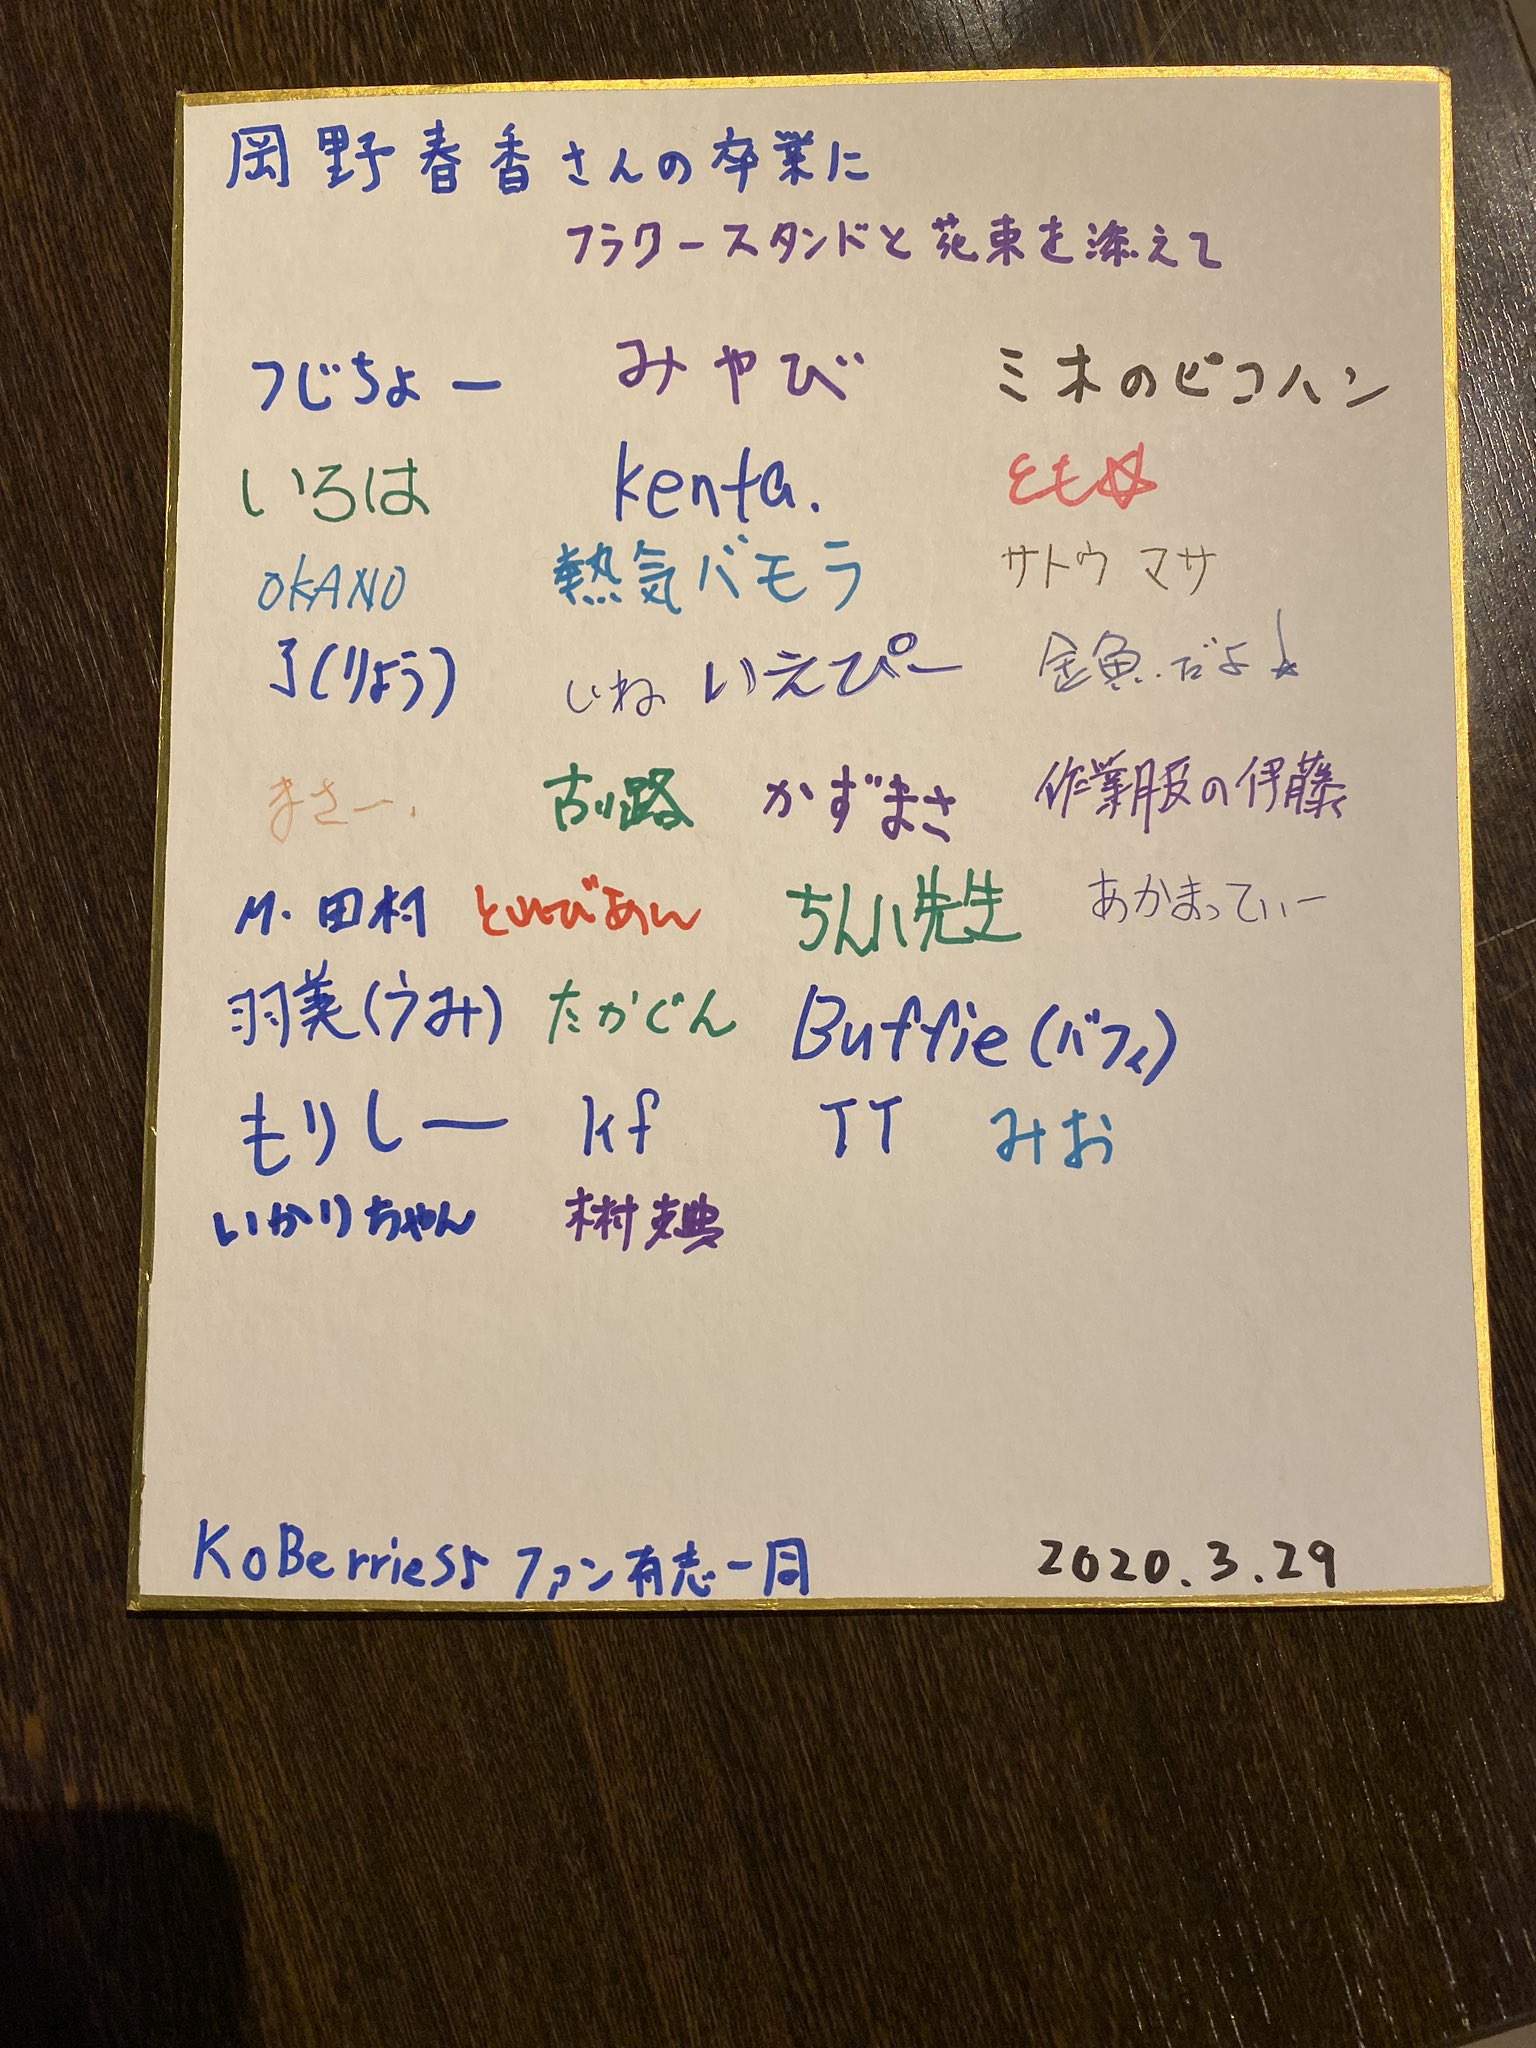 岡野春香さんの卒業に
フラワースタンドと花束を添えて
つじちょー みやび ミホのピコハン
いろは kenta. とも☆
OKANO 熱気バモラ サトウ マサ
了(りょう) しね いえぴー 金魚.だよ!
まさー. 古川路 かずまさ 作業服の伊藤
M.田村 といびあん ちんぺい先生 あかまってぃー
羽美(うみ) たかぐん Buffie(バフィ)
もりしー kf TT みお
いかりちゃん 木村克典
KoBerries♪ ファン有志一同 2020.3.29